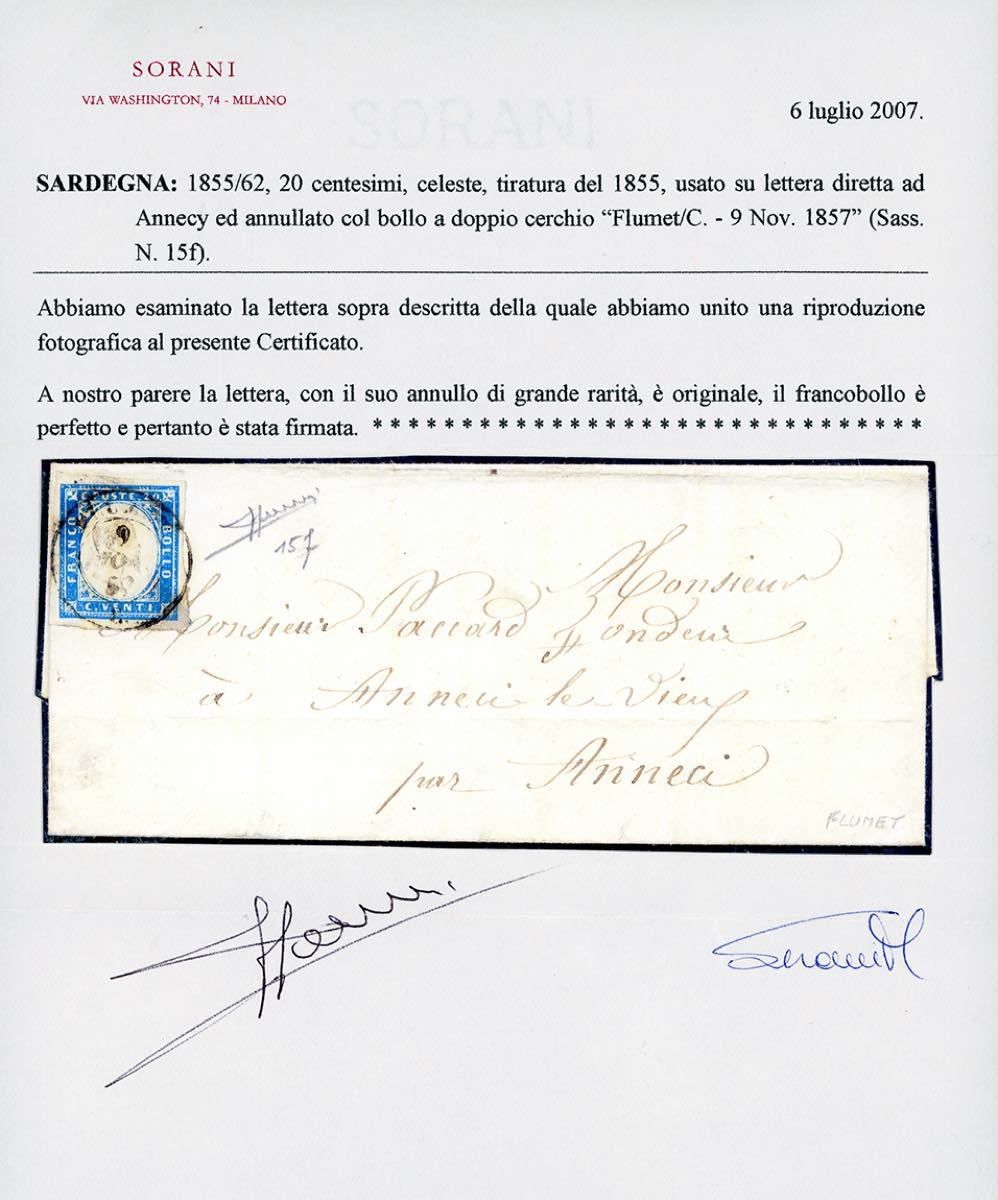 SORANI
VIA WASHINGTON, 74 - MILANO
SORANI
6 luglio 2007.
SARDEGNA: 1855/62, 20 centesimi, celeste, tiratura del 1855, usato su lettera diretta ad
Annecy ed annullato col bollo a doppio cerchio “Flumet/C. - 9 Nov. 1857” (Sass.
N. 15f).
Abbiamo esaminato la lettera sopra descritta della quale abbiamo unito una riproduzione
fotografica al presente Certificato.
A nostro parere la lettera, con il suo annullo di grande rarità, è originale, il francobollo è
perfetto e pertanto è stata firmata. * * * * * * * * * * * * * * * * * * * * * * * * * * * * * * *
FRANCO
BOLLO
C. VENTI
9
15f
Monsieur
Monsieur Paccard Fondeur
à Anneci le Vieux
par Anneci
FLUMET